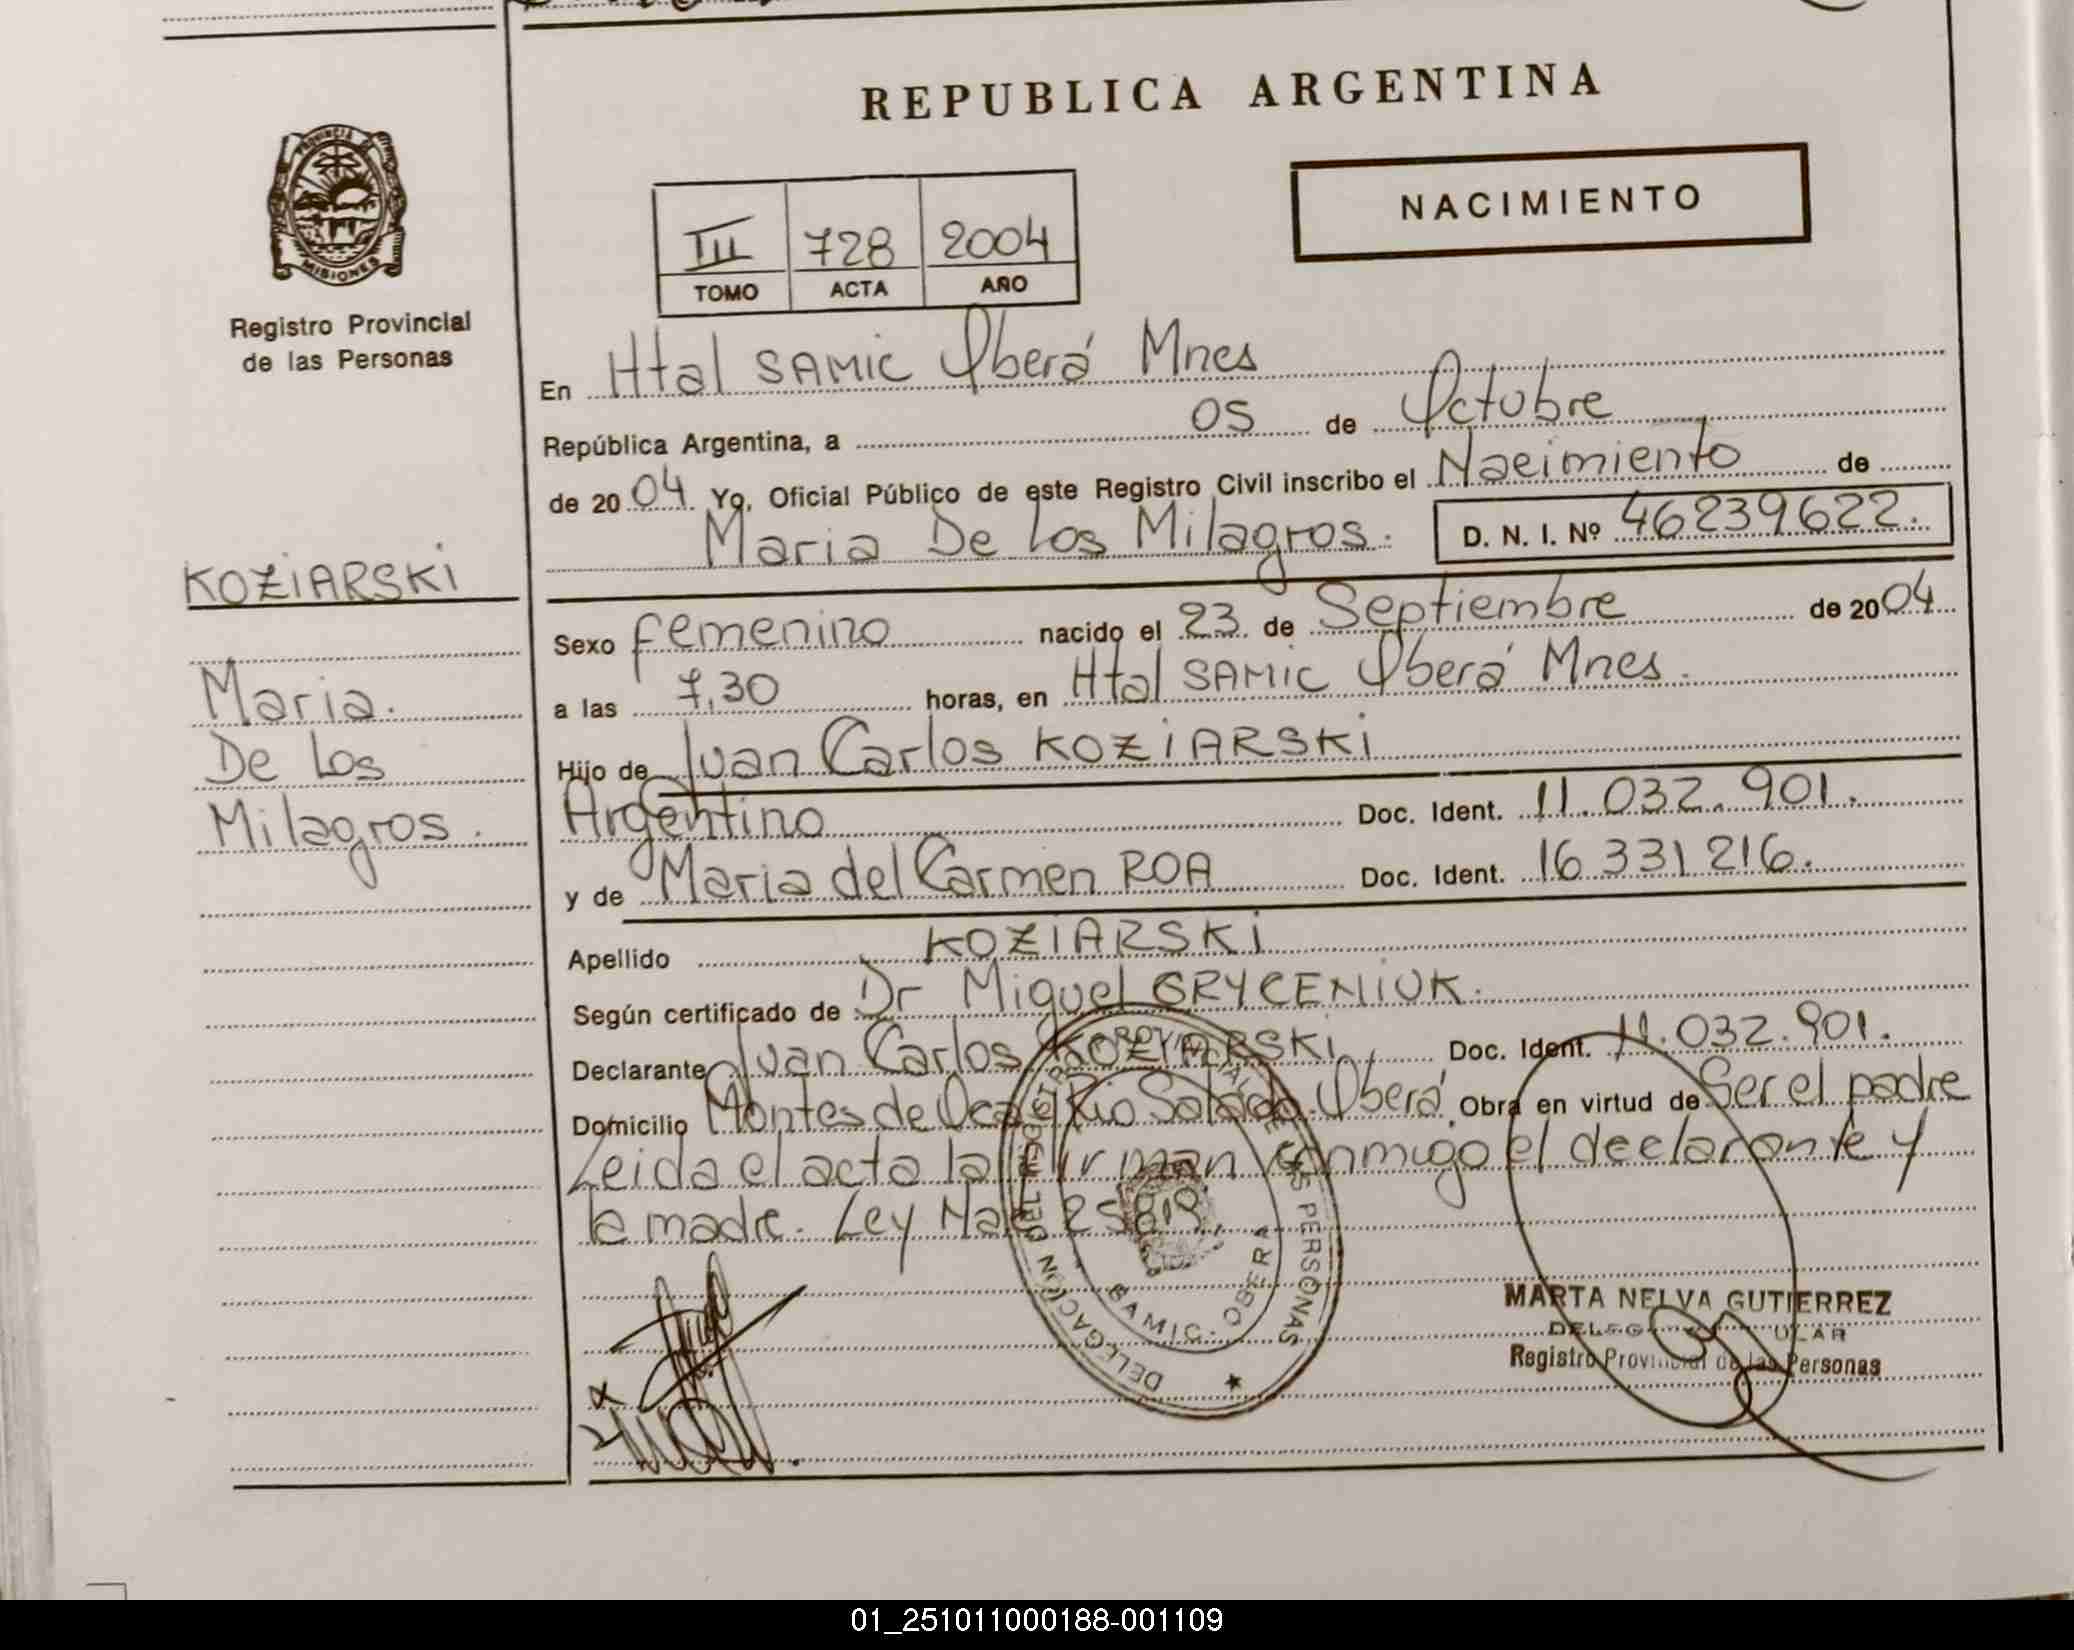 REPUBLICA ARGENTINA
PROVINCIA DE
MISIONES
Registro Provincial
de las Personas
NACIMIENTO
III 728 2004
TOMO ACTA AÑO
En Htal SAMIC Oberá Mnes
República Argentina, a 05 de Octubre
de 2004 Yo, Oficial Público de este Registro Civil inscribo el Nacimiento de
Maria De Los Milagros. D. N. I. Nº 46239622.
KOZIARSKI
Maria.
De Los
Milagros.
Sexo femenino nacido el 23 de Septiembre de 2004
a las 7,30 horas, en Htal SAMIC Oberá Mnes.
Hijo de Juan Carlos KOZIARSKI
Argentino Doc. Ident. 11.032.901.
y de Maria del Carmen ROA Doc. Ident. 16 331 216.
Apellido KOZIARSKI
Según certificado de Dr Miguel GRYCENIUK.
Declarante Juan Carlos KOZIARSKI Doc. Ident. 11.032.901.
Domicilio Montes de Oca e Rio Salado. Oberá. Obra en virtud de Ser el padre
Leida el acta la firman conmigo el declarante y
la madre. Ley Nac 25819.
DELEGACION DEL REGISTRO PROVINCIAL DE LAS PERSONAS
SAMIC - OBERA
MARTA NELVA GUTIERREZ
Registro Provincial de las Personas
01_251011000188-001109